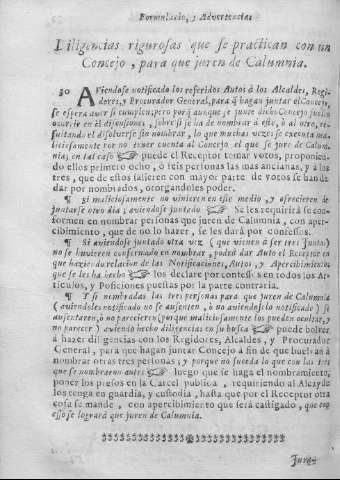 Formulario, y Advertencias
Diligencias rigurosas que se practican con un
Concejo, para que juren de Calumnia.
30 Aviendose notificado los referidos Autos à los Alcaldes, Regi-
dores, y Procurador General, para q̃ hagan juntar el Concejo,
se espera aver si cumplen; pero porq̃ aunque se junte dicho Concejo suelen
ocurrir en él discusiones, sobre si se ha de nombrar à este, ò al otro, re-
sultando el disolverse sin nombrar, lo que muchas vezes se executa ma-
liciosamente por no tener cuenta al Concejo el que se jure de Calum-
nia; en tal caso ☞ puede el Receptor tomar votos, proponien-
do ellos primero ocho, ò seis personas las mas ancianas, y à los
tres, que de estos salieren con mayor parte de votos se han de
dar por nombrados, otorgandoles poder.
¶ si maliciosamente no vinieren en este medio, y ofrecieren de
juntarse otro dia; aviendose juntado ☞ Se les requirirà se con-
formen en nombrar personas que juren de Calumnia, con aper-
cibimiento, que de no lo hazer, se les darà por confessos.
¶ Si aviendose juntado otra vez (que vienen à ser tres Junto)
no se huvieren conformado en nombrar, podrà dar Auto el Receptor en
que haziendo relacion de las Notificaciones, Autos, y Apercibimiento
que se les ha hecho ☞ los declare por confessos en todos los Ar-
ticulos, y Posiciones puestas por la parte contraria.
¶ Y si nombradas las tres personas para que juren de Calumnia
(aviendoles notificado no se ausenten, ò no aviendoselo notificado) si
ausentaren, ò no parecieren (porque maliciosamente los pueden ocultar, y
no parecer) aviendo hecho diligencias en su busca ☞ puede bolver
à hazer diligencias con los Regidores, Alcaldes, y Procurador
General, para que hagan juntar Concejo à fin de que buelvan à
nombrar otras tres personas; y porque no suceda lo que con las tres
que se nombraron antes ☞ luego que se haga el nombramiento,
poner los presos en la Carcel publica, requiriendo al Alcayde
los tenga en guardia, y custodia, hasta que por el Receptor otra
cosa se mande, con apercibimiento que serà castigado, que con
esso se lograrà que juren de Calumnia.
Juran